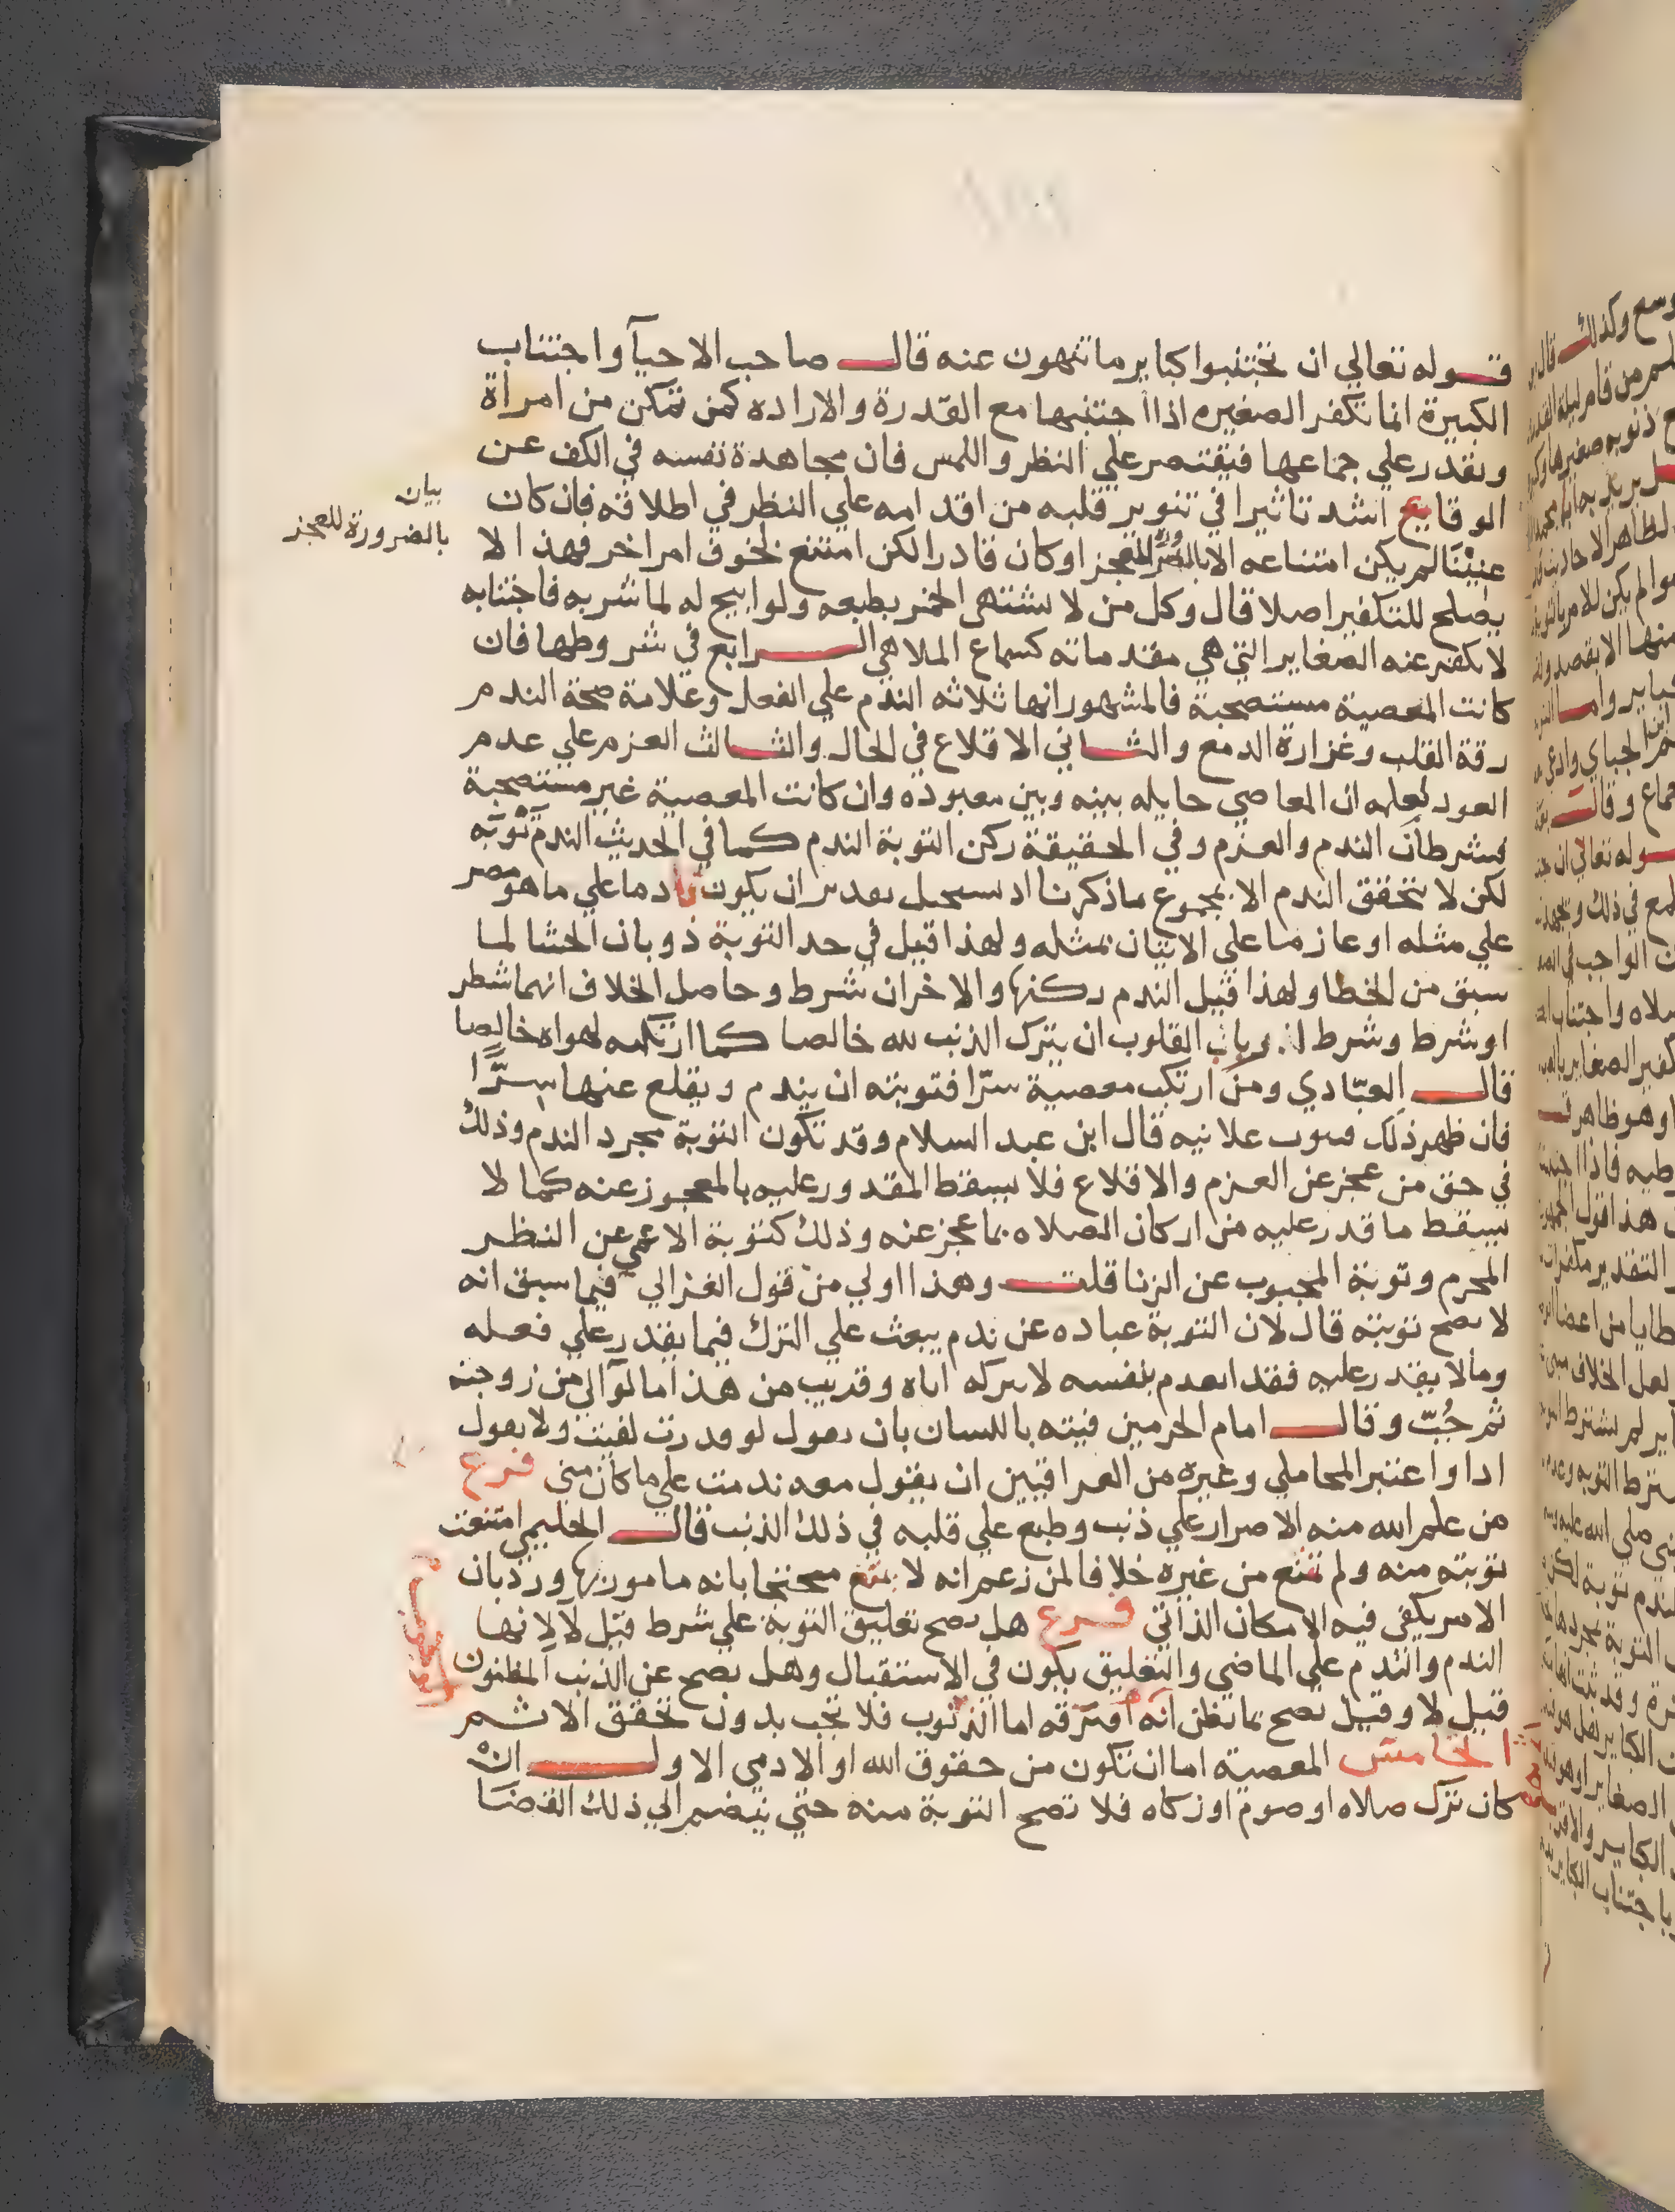 قوله تعالي ان تجتنبوا كباير ما تنهون عنه قال صاحب الاحيآ واجتناب
الكبيرة انما تكفر الصغيره اذا اجتنبها مع القدرة والاراده كمن تمكن من امراة
ويقدر علي جماعها فيقتصر علي النظر واللمس فان مجاهدة نفسه في الكف عن
الوقايع اشد تاثيرا في تنوير قلبه من اقدامه علي النظر في اطلاقه فان كان
عنينا لم يكن امتناعه الا بالضرورة للعجز او كان قادرا لكن امتنع لخوف امر اخر فهذا لا
بيان
بالضرورة للعجز
يصلح للتكفير اصلا قال وكل من لا يشتهي الخمر بطبعه ولو ابيح له لما شربه فاجتنابه
لا يكفر عنه الصغاير التي هي مقدماته كسماع الملاهي الرابع في شروطها فان
كانت المعصية مستصحبة فالمشهور انها ثلاثه الندم علي الفعل وعلامة صحة الندم
رقة القلب وغزارة الدمع والثاني الاقلاع في الحال والثالث العزم علي عدم
العود لعلمه ان المعاصي حايله بينه وبين معبوده وان كانت المعصية غير مستصحبة
فشرطان الندم والعزم وفي الحقيقة ركن التوبة الندم كما في الحديث الندم توبه
لكن لا يتحقق الندم الا بمجموع ما ذكرنا اذ يستحيل تقدير ان يكون نادما علي ما هو مصر
علي مثله او عازما علي الاتيان بمثله ولهذا قيل في حد التوبة ذوبان الحشا لما
سبق من الخطا ولهذا قيل الندم ركنها والاخران شرط وحاصل الخلاف انهما شطر
او شرط وشرط القلوب ان يترك الذنب لله خالصا كما ارتكبه لهواه خالصا
قال العبّادي ومن ارتكب معصية سرّا فتوبته ان يندم ويقلع عنها سرًّا
فان ظهر ذلك فيتوب علانيه قال ابن عبد السلام وقد تكون التوبة مجرد الندم وذلك
في حق من عجز عن العزم والاقلاع فلا يسقط المقدور عليه بالمعجوز عنه كما لا
يسقط ما قدر عليه من اركان الصلاه بما عجز عنه وذلك كتوبة الاعمي عن النظر
المحرم وتوبة المجبوب عن الزنا قلت وهذا اولي من قول الغزالي فيما سبق انه
لا تصح توبته قال لان التوبة عباده عن ندم يبعث علي الترك فيما يقدر علي فعله
وما لا يقدر عليه فقد انعدم بنفسه لا بتركه اياه وقريب من هذا ما لو آلي من زوجته
ثم جُبّ وقال امام الحرمين فيته باللسان بان يقول لو قدرت لفيت ولا يقول
اذا واعتبر المحاملي وغيره من العراقيين ان يقول معه ندمت علي ما كان مني فرع
من علم الله منه الاصرار علي ذنب وطبع علي قلبه في ذلك الذنب قال الحليمي امتنعت
توبته منه ولم تمتنع من غيره خلافا لمن زعم انه لا يمتنع محتجا بانه مامور بها ورد بان
الامر يكفي فيه الامكان الذاتي فرع هل يصح تعليق التوبة علي شرط قيل لا لانها
الندم والندم علي الماضي والتعليق يكون في الاستقبال وهل تصح عن الذنب المظنون
قيل لا وقيل تصح بما يظن انه اقترفه اما الذنوب فلا تجب بدون تحقق الاثم
الخامس المعصية اما ان تكون من حقوق الله او الادمي الاول ان
كان ترك صلاه او صوم او زكاه فلا تصح التوبة منه حتي ينضم الي ذلك القضا